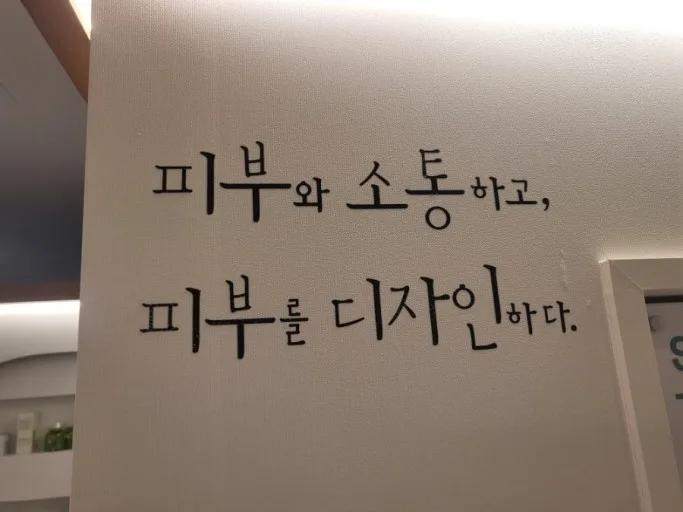 피부와 소통하고,
피부를 디자인하다.